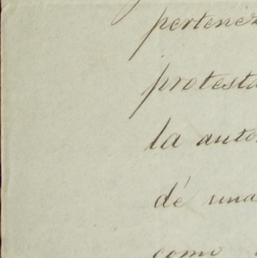 pertenez
protesta
la auto
dé una
como